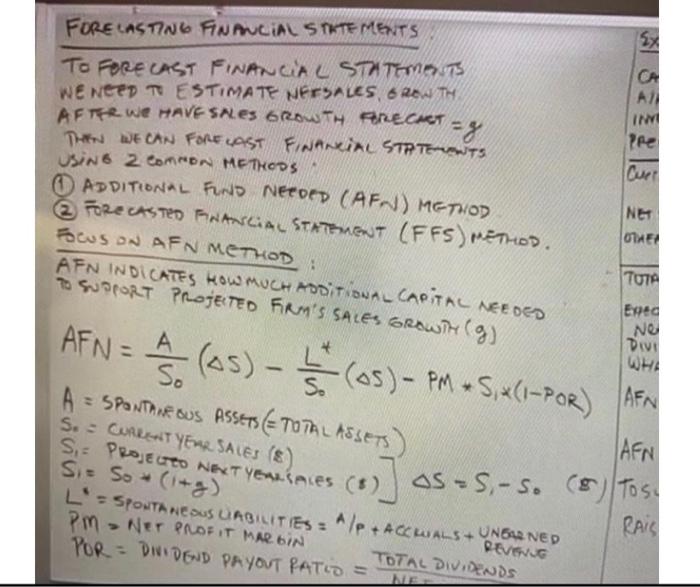 FORECASTING FINANCIAL STATEMENTS.
TO FORECAST FINANCIAL STATEMENTS
WE NEED TO ESTIMATE NET SALES, GROWTH.
AFTER WE HAVE SALES GROWTH FORECAST = g
THEN WE CAN FORECAST FINANCIAL STATEMENTS
USING 2 COMMON METHODS.
① ADDITIONAL FUND NEEDED (AFN) METHOD
② FORECASTED FINANCIAL STATEMENT (FFS) METHOD.
FOCUS ON AFN METHOD:
AFN INDICATES HOW MUCH ADDITIONAL CAPITAL NEEDED
TO SUPPORT PROJECTED FIRM'S SALES GROWTH (g)
AFN = A/S₀ (ΔS) - L*/S₀ (ΔS) - PM * S₁ x (1-POR)
A = SPONTANEOUS ASSETS (= TOTAL ASSETS)
S₀ = CURRENT YEAR SALES ($)
S₁ = PROJECTED NEXT YEAR SALES ($)] ΔS = S₁ - S₀ ($)
S₁ = S₀ * (1+g)
L* = SPONTANEOUS LIABILITIES = A/P + ACCRUALS + UNEARNED REVENUE
PM = NET PROFIT MARGIN
POR = DIVIDEND PAYOUT RATIO = TOTAL DIVIDENDS
EX
CA
A/
INV
PRE
CURR
NET
OTHER
TOTA
EXPEC
NE
DIVI
WHA
AFN
AFN
TO SU
RAIS